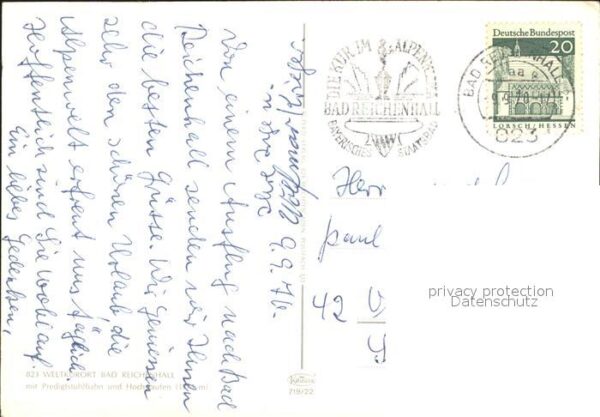 Von einem Ausflug nach Bad
Reichenhall senden wir Ihnen
die besten Grüsse. Wir geniessen
sehr den schönen Urlaub, die
Alpenwelt erfreut uns täglich.
Hoffentlich sind Sie wohlauf.
Ein liebes Gedenken,
9.9.70.
DIE KUR IM ALPENPARK
BAD REICHENHALL
BAYERISCHES STAATSBAD
Deutsche Bundespost
20
LORSCH/HESSEN
BAD REICHENHALL
823
Herr
Paul
42
privacy protection
Datenschutz
823 WELTKURORT BAD REICHENHALL
mit Predigtstuhlbahn und Hochstaufen
719/22